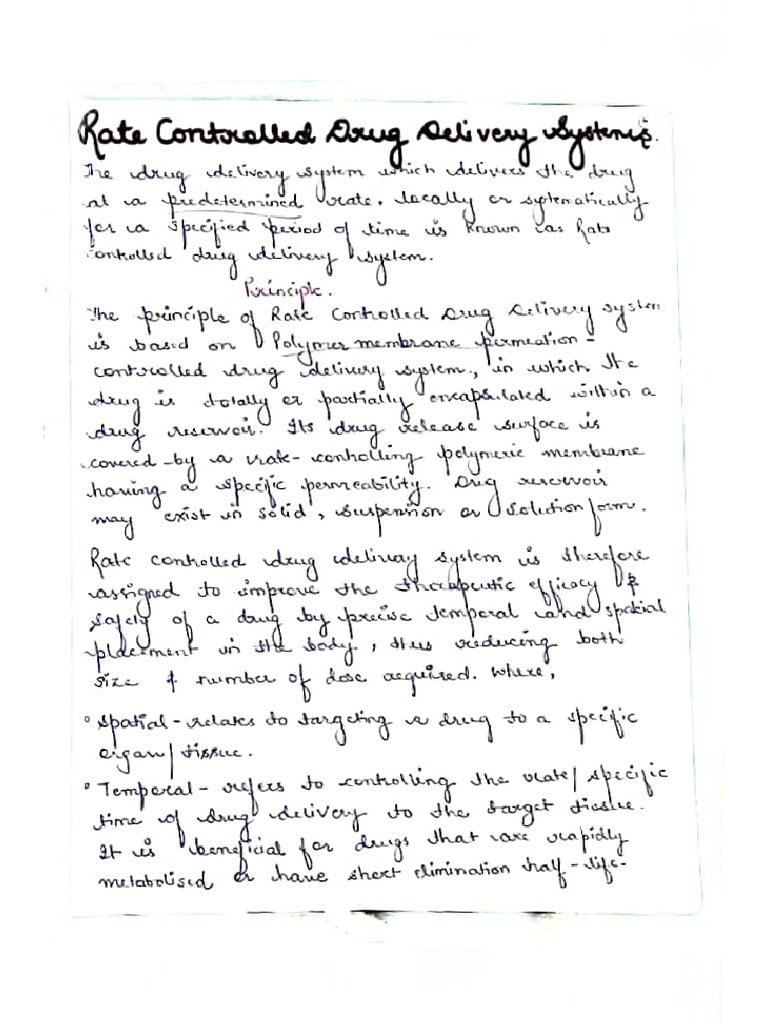 Rate Controlled Drug Delivery Systems.
The drug delivery system which delivers the drug
at a predetermined rate, locally or systematically
for a specified period of time is known as Rate
controlled drug delivery system.
Principle.
The principle of Rate Controlled Drug Delivery system
is based on Polymer membrane permeation-
controlled drug delivery system, in which the
drug is totally or partially encapsulated within a
drug reservoir. Its drug release surface is
covered by a rate-controlling polymeric membrane
having a specific permeability. Drug reservoir
may exist in solid, suspension or solution form.
Rate controlled drug delivery system is therefore
assigned to improve the therapeutic efficacy &
safety of a drug by precise temporal and spatial
placement in the body, thus reducing both
size & number of dose acquired. where,
° Spatial - relates to targeting a drug to a specific
organ/tissue.
° Temporal - refers to controlling the rate/specific
time of drug delivery to the target tissue.
It is beneficial for drugs that are rapidly
metabolised or have short elimination half-life-